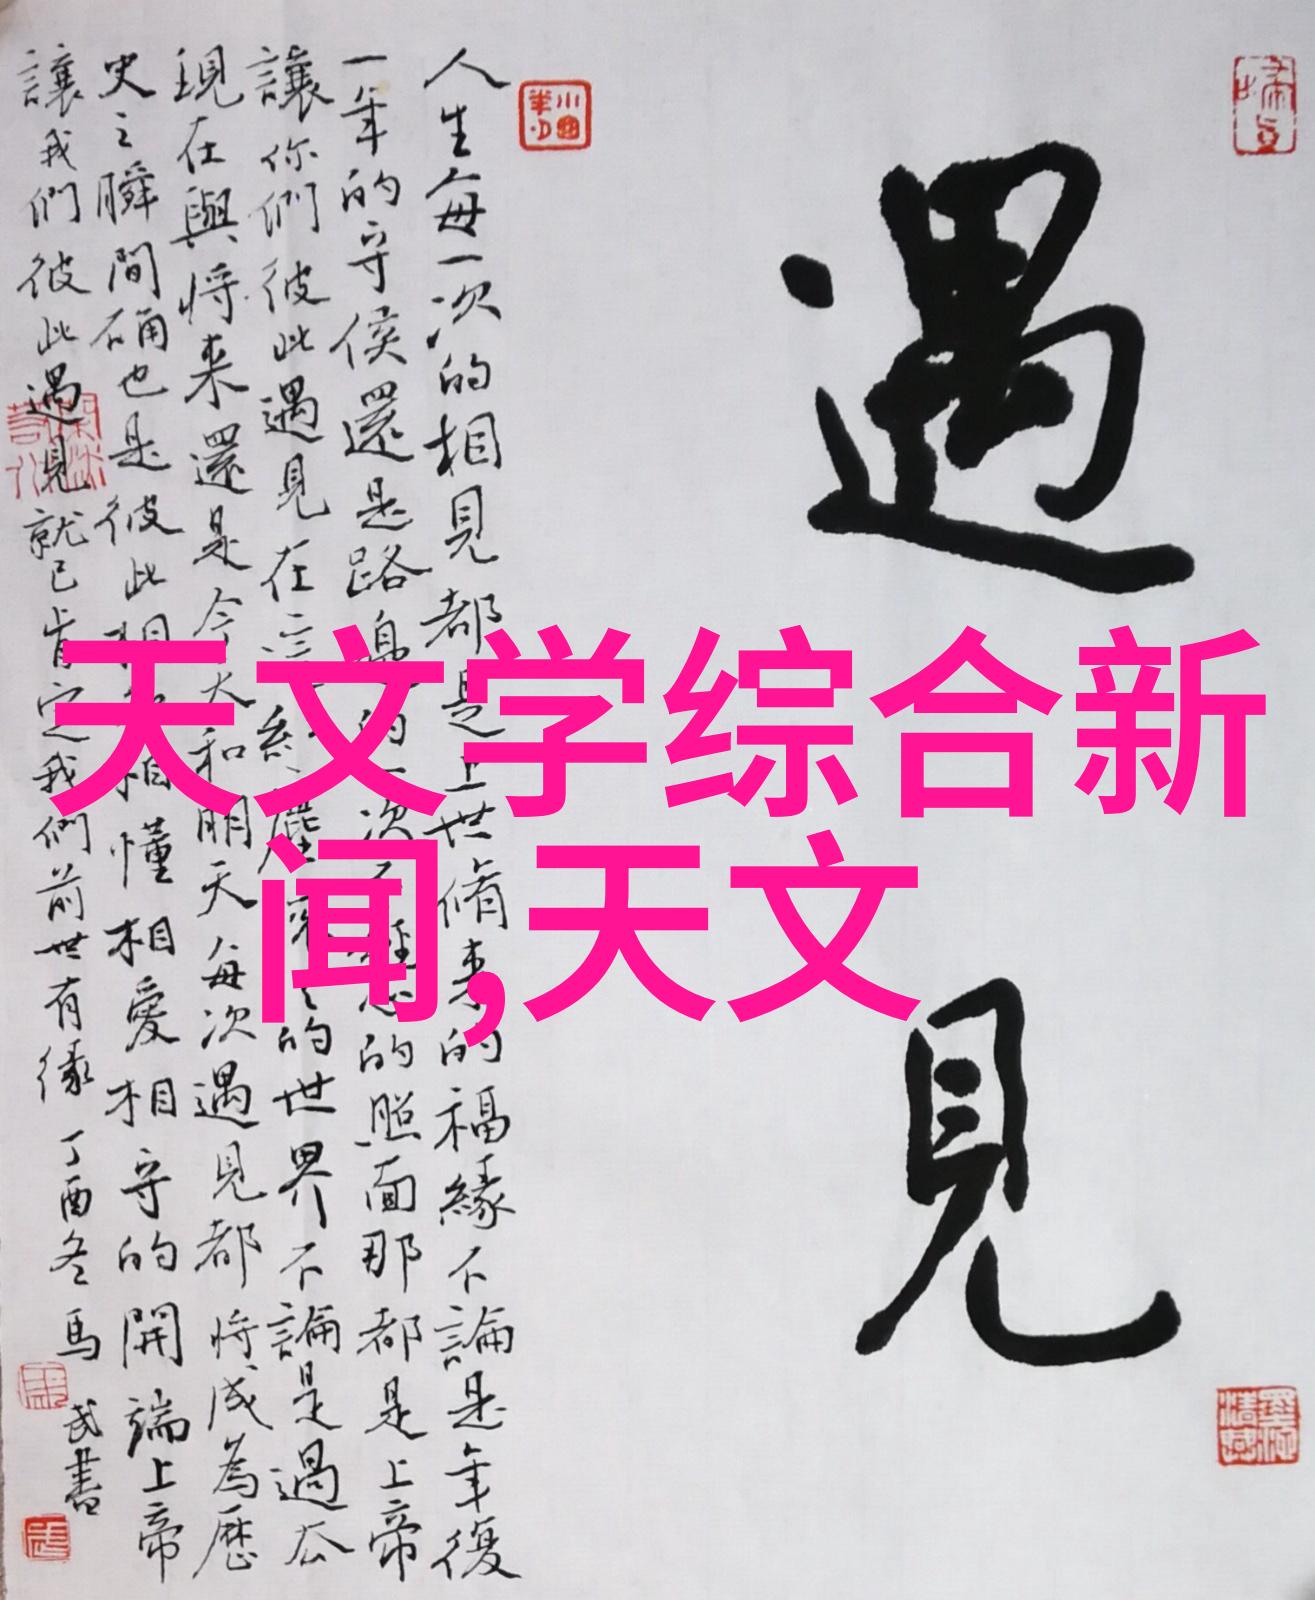 遇見
人生每一次的相見都是上世脩来的福緣不論是年復
一年的守侯還是路的次的照面那都是上帝
讓你們彼此遇見在的世界不論是過去
現在與將来還是今天和明天每次遇見都將成為歷
史之瞬間确也是彼此相相懂相愛相守的開端上帝
讓我們彼此遇見就已肯定我們前世有缘
丁酉冬馬武書
天文学综合新
闻,天文